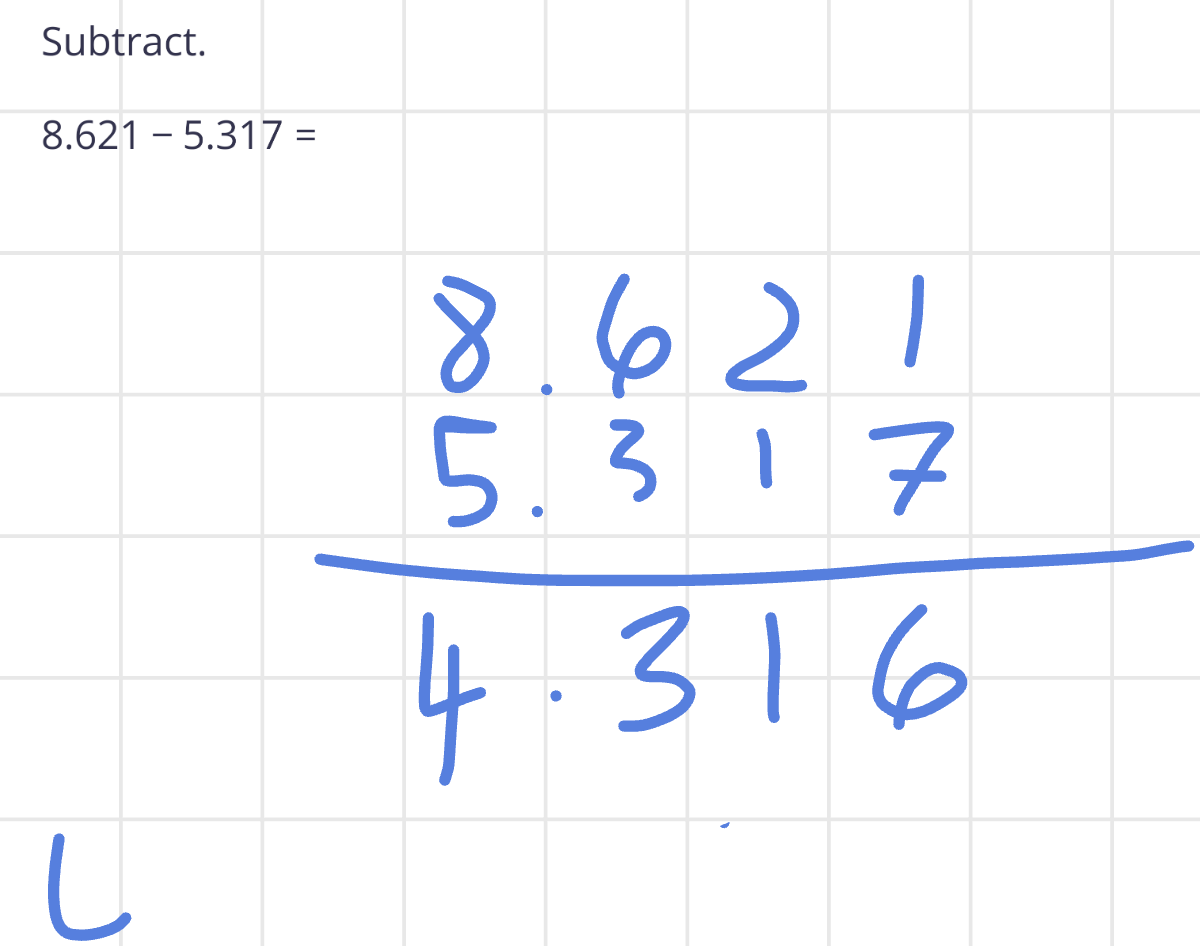 Subtract.
8.621 − 5.317 =
8.621
5.317
4.316
L